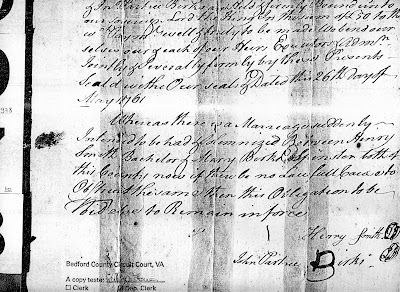 our Sovereign Lord the King in the sum of £50 to the
well & truly to be made We bend our
selves our & each of our Heirs Exutors & Admrs
Jointly & Severally firmly by these Presents
Seald with Our seals & Dated this 26th day of
May 1761
Whereas there is a Maraeage suddenly
Intended to be had & Solemnized Between Henry
Smith Bachelor & Mary Birks Spinster both of
this County now if there be no Lawfull Cause to
Obstruct the same then this Obligation to be
Void else to Remain in force
Henry Smith
John Partree Birks
Bedford County Circuit Court, VA
A copy teste:
☐ Clerk Dep. Clerk